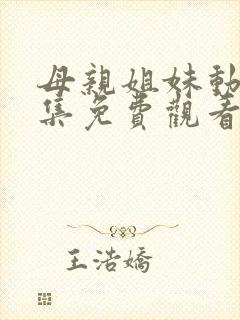 母親姐妹動
集免費觀看
王浩嬌